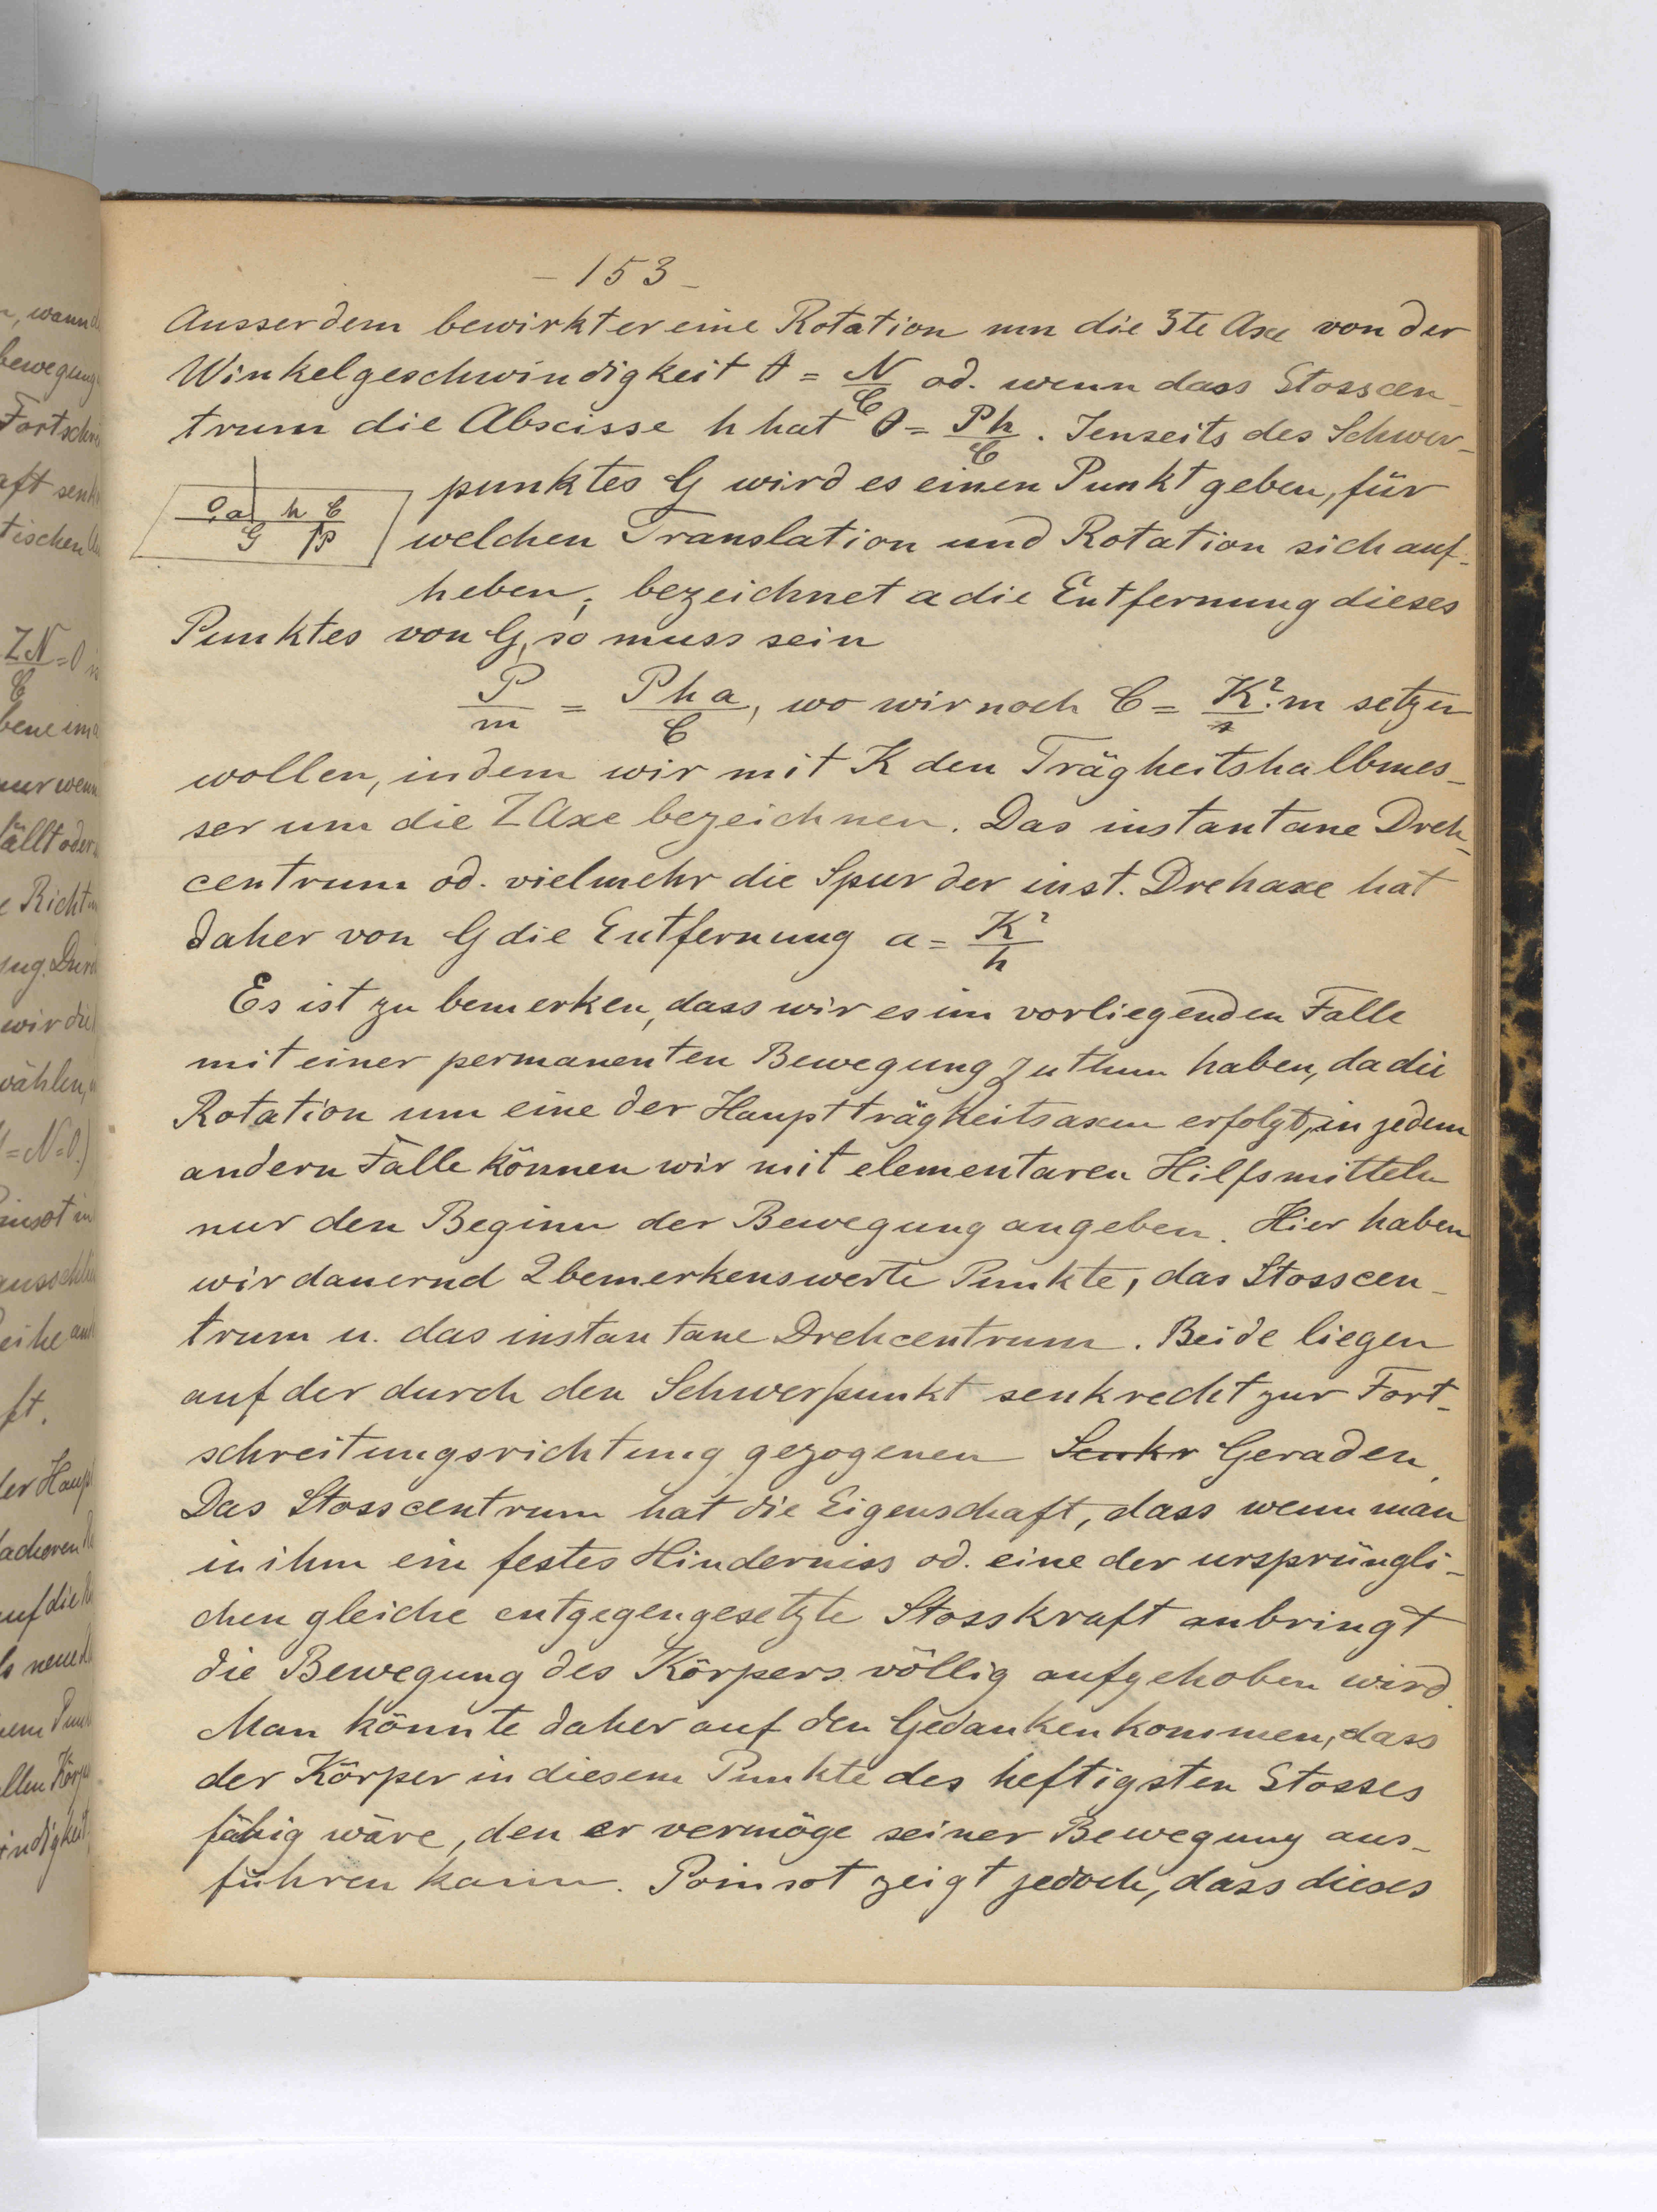 - 153 -
Ausserdem bewirkt er eine Rotation um die 3te Axe von der
Winkelgeschwindigkeit θ = N/C od. wenn dass Stosscen-
trum die Abscisse h hat θ = Ph/C. Jenseits des Schwer-
punktes G wird es einen Punkt geben, für
O a h C
G P
welchen Translation und Rotation sich auf-
heben; bezeichnet a die Entfernung dieses
Punktes von G, so muss sein
P/m = Pha/C, wo wir noch C = K².m setzen
wollen, indem wir mit K den Trägheitshalbmes-
ser um die Z Axe bezeichnen. Das instantane Dreh-
centrum od. vielmehr die Spur der inst. Drehaxe hat
daher von G die Entfernung a = K²/h
Es ist zu bemerken, dass wir es im vorliegenden Falle
mit einer permanenten Bewegung zu thun haben, da die
Rotation um eine der Hauptträgheitsaxen erfolgt, in jedem
andern Falle können wir mit elementaren Hilfsmitteln
nur den Beginn der Bewegung angeben. Hier haben
wir dauernd 2 bemerkenswerte Punkte, das Stosscen-
trum u. das instantane Drehcentrum. Beide liegen
auf der durch den Schwerpunkt senkrecht zur Fort-
schreitungsrichtung gezogenen Senkr Geraden.
Das Stosscentrum hat die Eigenschaft, dass wenn man
in ihm ein festes Hinderniss od. eine der ursprüngli-
chen gleiche entgegengesetzte Stosskraft anbringt
die Bewegung des Körpers völlig aufgehoben wird.
Man könnte daher auf den Gedanken kommen, dass
der Körper in diesem Punkte des heftigsten Stosses
fähig wäre, den er vermöge seiner Bewegung aus-
führen kann. Poinsot zeigt jedoch, dass dieses